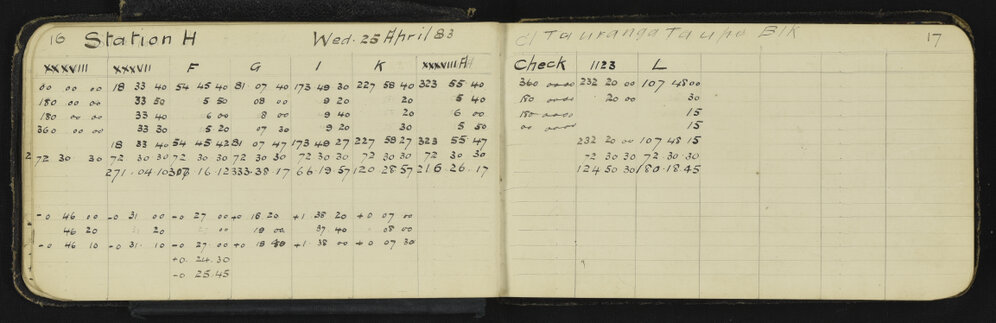 16 Station H Wed. 25 April 83
XXXVIII XXXVII F G I K XXXVIII A
00 00 00 18 33 40 54 45 40 81 07 40 173 49 30 227 58 40 323 55 40
180 00 00 33 50 5 50 08 00 9 20 20 5 40
180 00 00 33 40 6 00 8 00 9 40 20 6 00
360 00 00 33 30 5 20 07 30 9 20 30 5 50
18 33 40 54 45 42 81 07 47 173 49 27 227 58 27 323 55 47
272 30 30 72 30 30 72 30 30 72 30 30 72 30 30 72 30 30 72 30 30
271 04 10 307 16 12 333 38 17 66 19 57 120 28 57 216 26 17
-0 46 00 -0 31 00 -0 27 00 +0 18 20 +1 38 20 +0 07 00
46 20 00 18 00 37 40 08 00
-0 46 10 -0 31 10 -0 27 00 +0 18 +1 38 00 +0 07 30
+0 24 30
-0 25 45
d/ Tauranga Taupo Blk 17
Check 1123 L
360 00 00 232 20 00 107 48 00
180 00 00 20 00 30
180 00 00 15
00 00 00 15
232 20 00 107 48 15
72 30 30 72 30 30
124 50 30 180 18 45